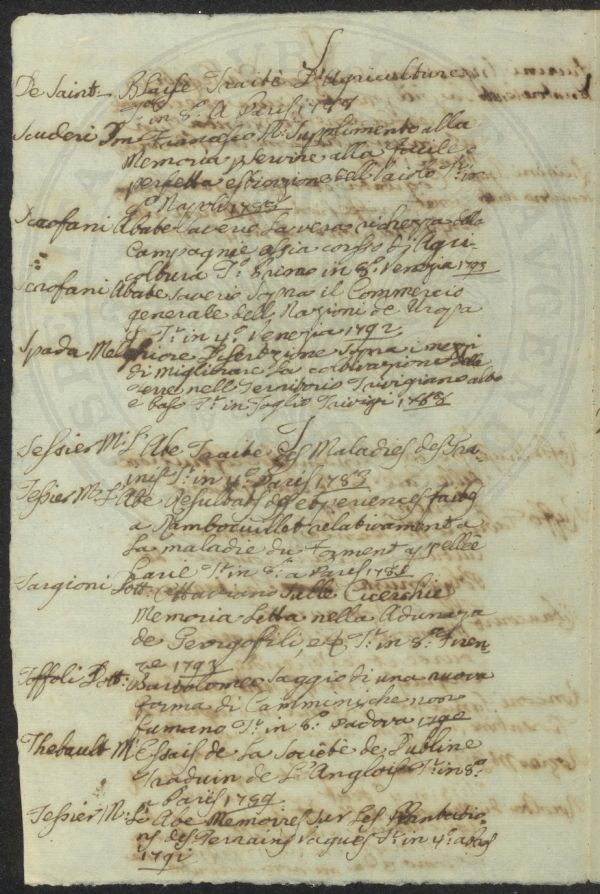 S
De Saint- Blaise Traité d'Agriculture
T. in 8.º A Paris 1788
Scuderi Dn. Francesco Supplimento alla
Memoria servire alla facile e
perfetta estrazione dell'aiolo T. in
8.º Napoli
Scrofani Abate Saverio La vera richezza delle
Campagnie ossia corsso di Agri-
coltura T.º Primo in 8.º Venezia 1793
Scrofani Abate Saverio Sopra il Commercio
generale delle Nazioni de Uropa
T. in 4.º Venezia 1792
Spada Melchiore Disertazione sopra i mezzi
di migliorare la coltivazione delle
Terre nell Territorio Trivigiano alto
e baso T. in foglio Trivigi
T
Tessier M.r L' Abe Traité des Maladies des Gra-
ines T. in 4.º Paris 1783
Tessier M.r L' Abe Resultats des experiences faites
a Rambouillet relativement a
La maladie du froment appellée
Carie T. in 8.º a Paris
Targioni Dott. Ottaviano Sulle Cicerchie
Memoria Letta nella Adunanza
de Georgofili, T. in 8.º Firen-
ze 1793
Toffoli Dott. Bartolomeo Saggio di una nuova
forma di Camminische non
fumano T. in 8.º Padova
Thebault M.r Essais de La Societé de Dubline
Traduin de L' Anglois T. in 8.º
a Paris 1759
Tessier M. L' Abe Memoires sur Les Plantatio-
ns des Terrains vagues T. in 4.º a Paris
1791